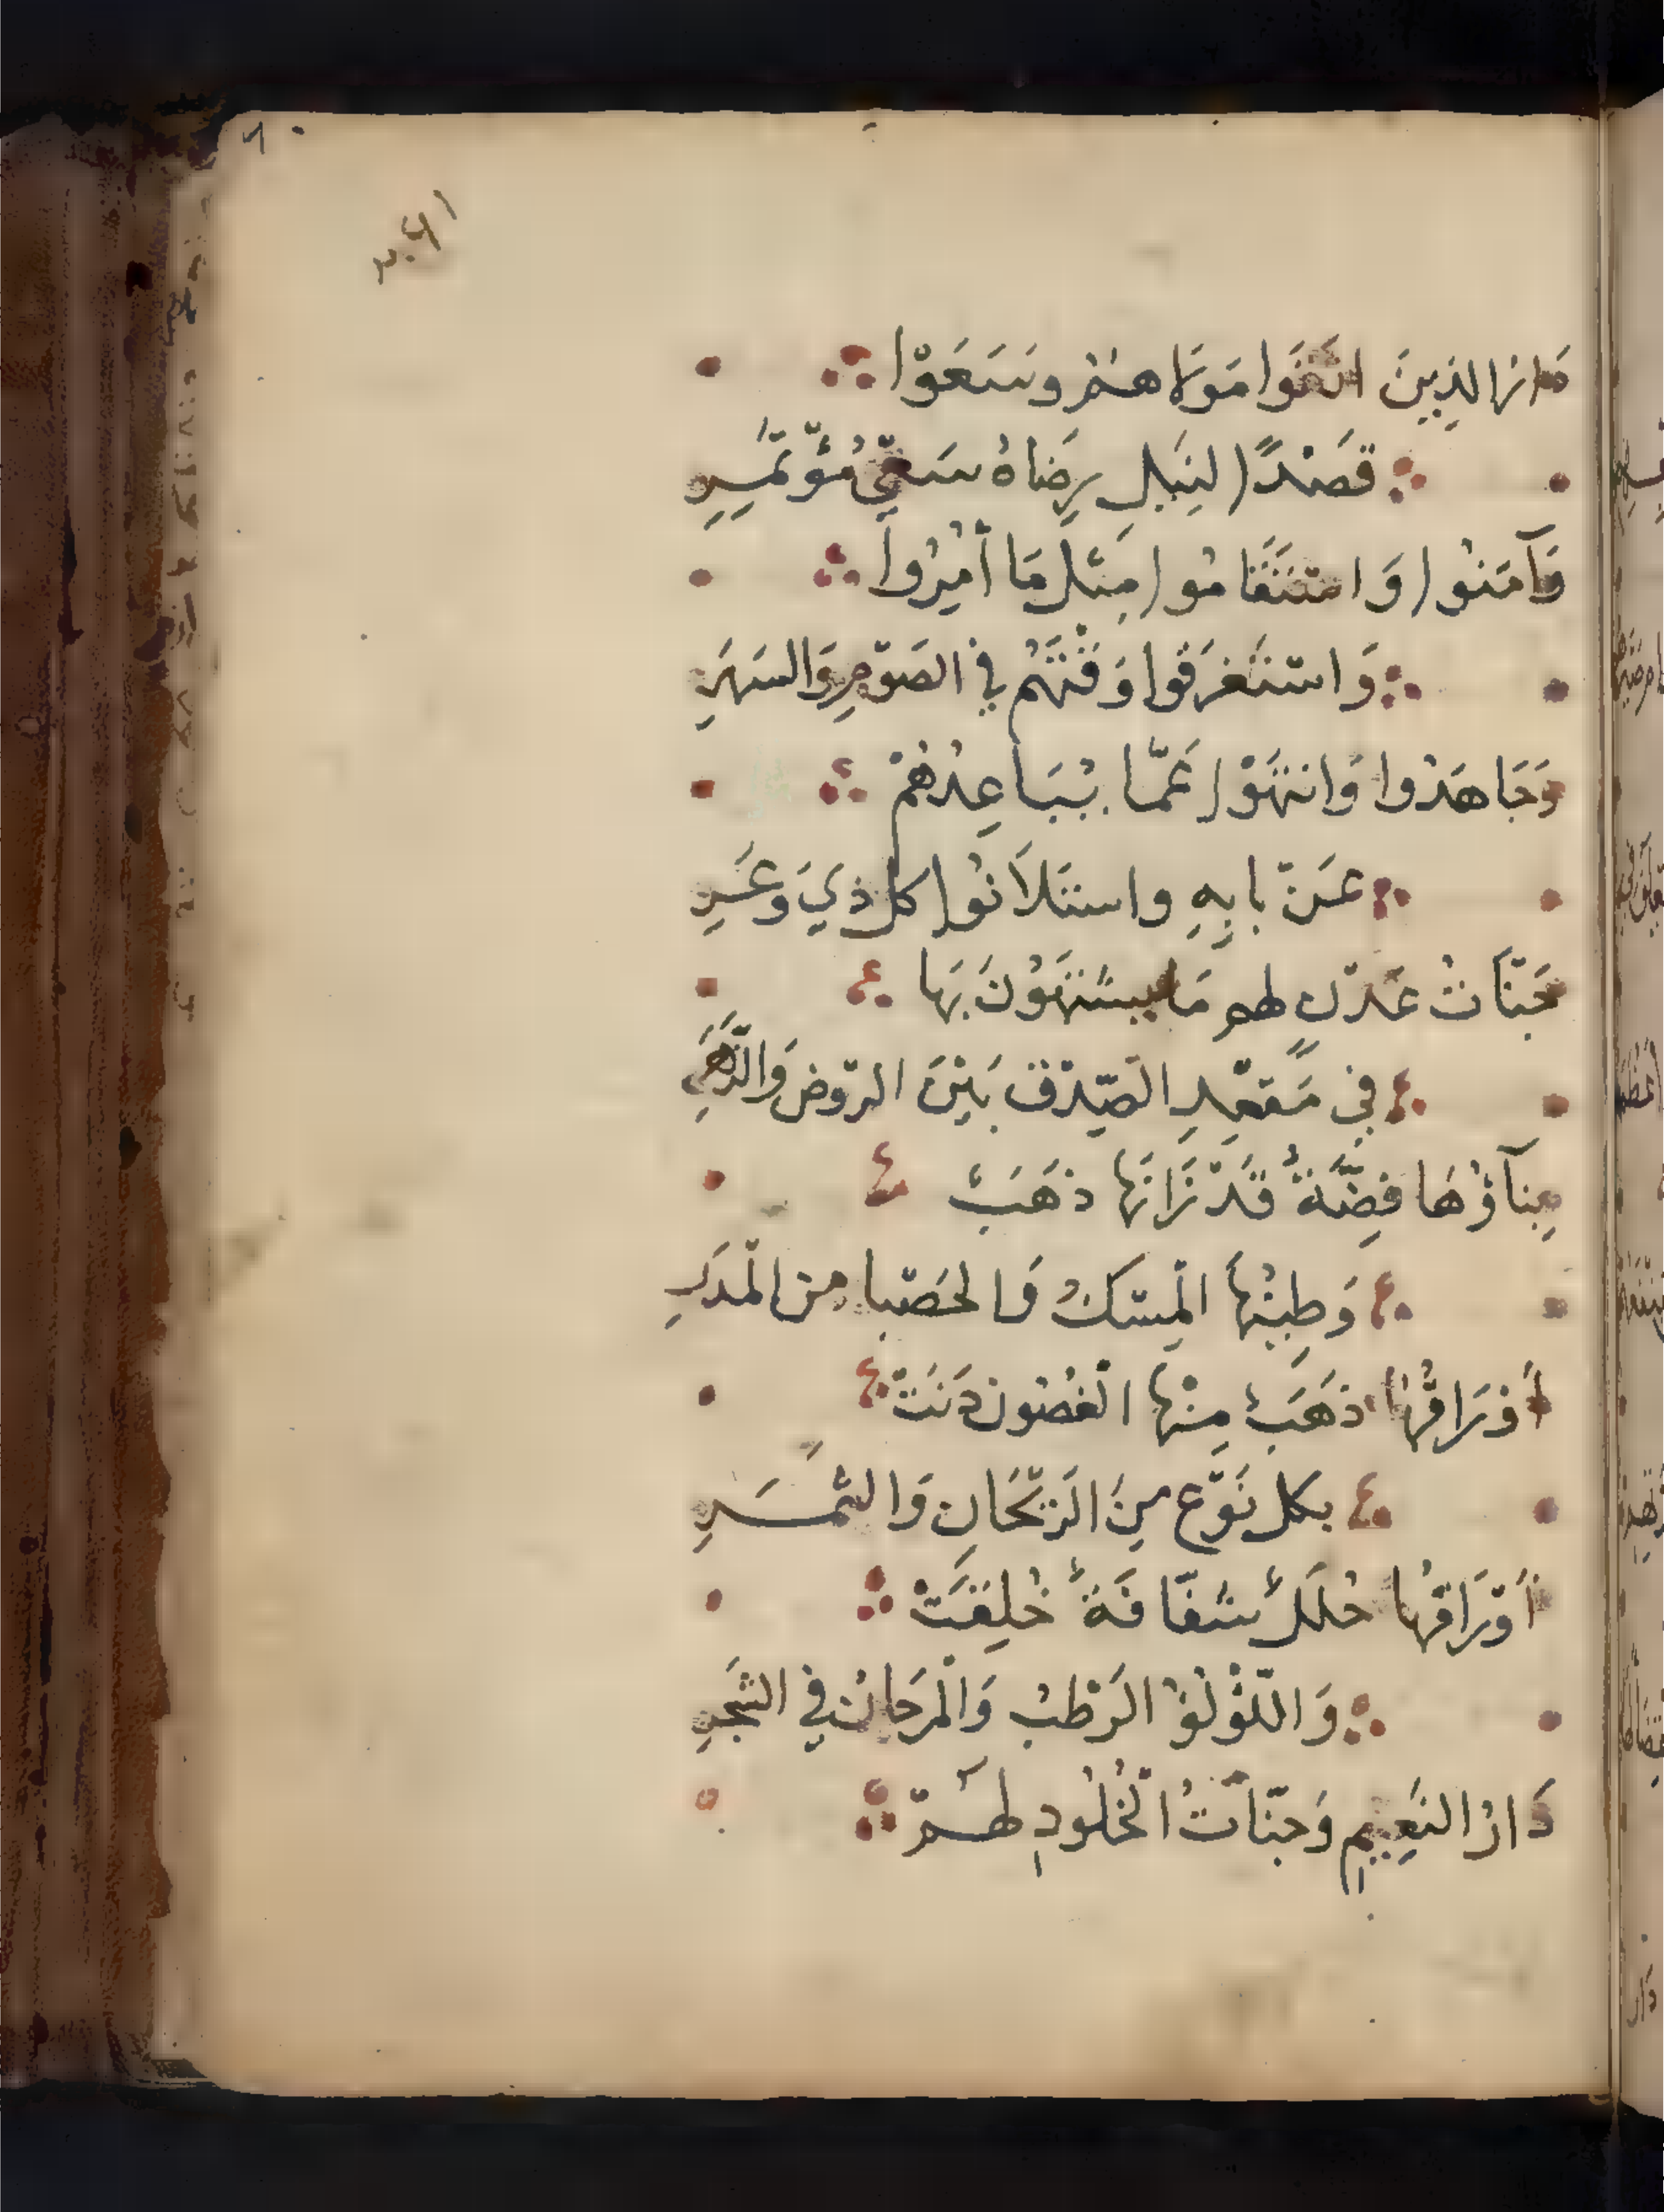 فاز الذِينَ اتَّقَوا مَولَاهُمْ وَسَعَوْا
قَصْدًا لِنَيلِ رِضَاهُ سَعْيَ مُؤْتَمِرِ
وَآمَنُوا وَاسْتَقَامُوا مِثْلَ مَا أُمِرُوا
وَاسْتَغْرَقُوا وَقْتَهُمْ فِي الصَوْمِ وَالسَهَرِ
وَجَاهَدُوا وَانْتَهَوْا عَمَّا يُبَاعِدُهُمْ
عَنْ بَابِهِ واسْتَلَانُوا كل ذِي وَعَرِ
جَنَّاتُ عَدْنٍ لهم مَا يَشْتَهُونَ بِهَا
فِي مَقْعَدِ الصِّدْقِ بَيْنَ الرَّوْضِ وَالزَّهَرِ
بِنَآؤُهَا فِضَّةٌ قَدْ زَانَهَا ذَهَبٌ
وَطِينُهَا الْمِسْكُ وَالحَصْبَا مِنَ الْمَدَرِ
أَوْرَاقُهَا ذَهَبٌ مِنْهَا الْغُصُونُ دَنَتْ
بكل نَوْعٍ مِنَ الرَّيْحَانِ وَالثَّمَرِ
أَوْرَاقُهَا حُلَلٌ شَفَّافَةٌ خُلِقَتْ
وَاللُّؤْلُؤُ الرَّطْبُ وَالْمَرْجَانُ فِي الشَّجَرِ
دَارُ النَّعِيمِ وَجَنَّاتُ الْخُلُودِ لهُمْ